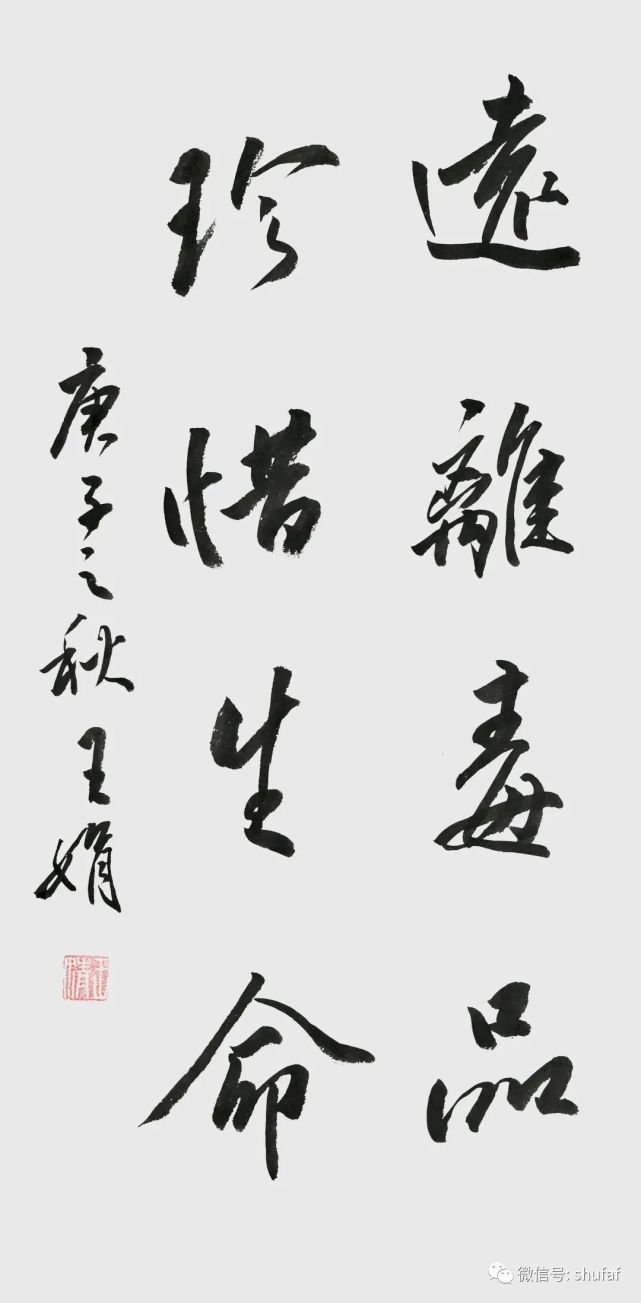 遠離毒品
珍惜生命
庚子之秋王娟
微信号: shufaf